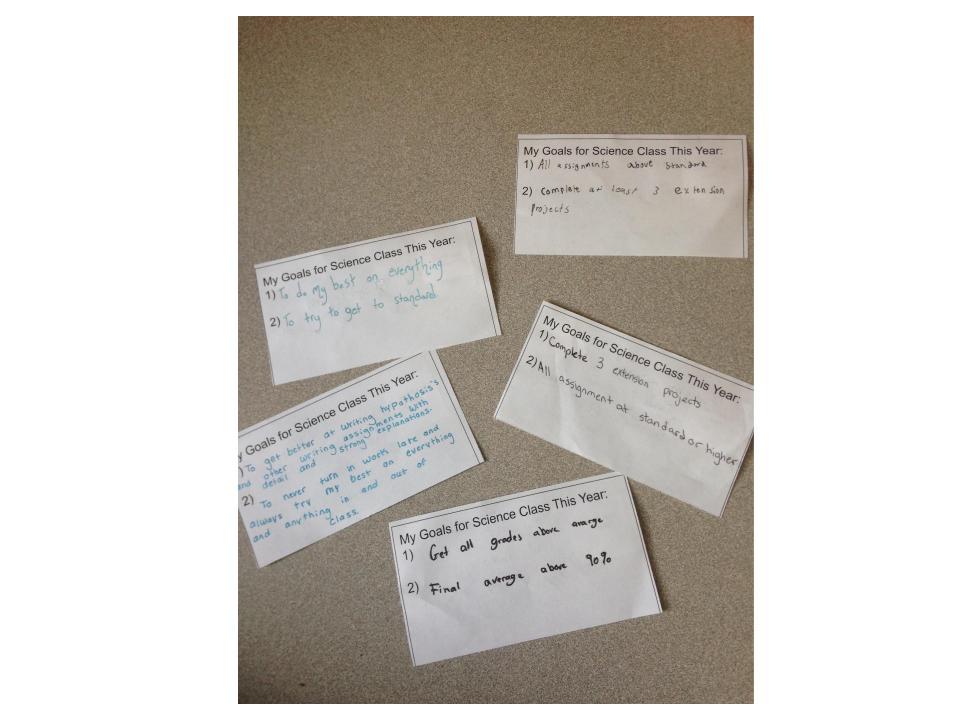 My Goals for Science Class This Year:
1) All assignments above standard
2) Complete at least 3 extension
projects
My Goals for Science Class This Year:
1) To do my best on everything
2) To try to get to standard
My Goals for Science Class This Year:
1) Complete 3 extension projects
2) All assignment at standard or higher
y Goals for Science Class This Year:
) To get better at writing hypothosis's
and other writing assignments with
detail and strong explanations.
2) To never turn in work late and
always try my best on everything
and anything in and out of
class.
My Goals for Science Class This Year:
1) Get all grades above avarge
2) Final average above 90%